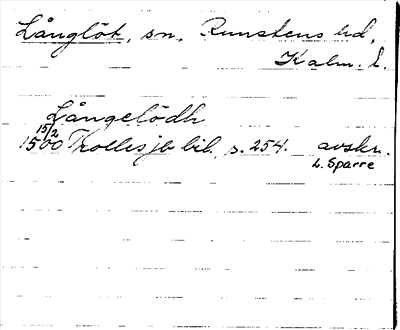 Långlöt, sn, Runstens hd,
Kalm. l.
Långelödh
15/2
1500 Trolles jb bil, s. 254. avskr.
L. Sparre